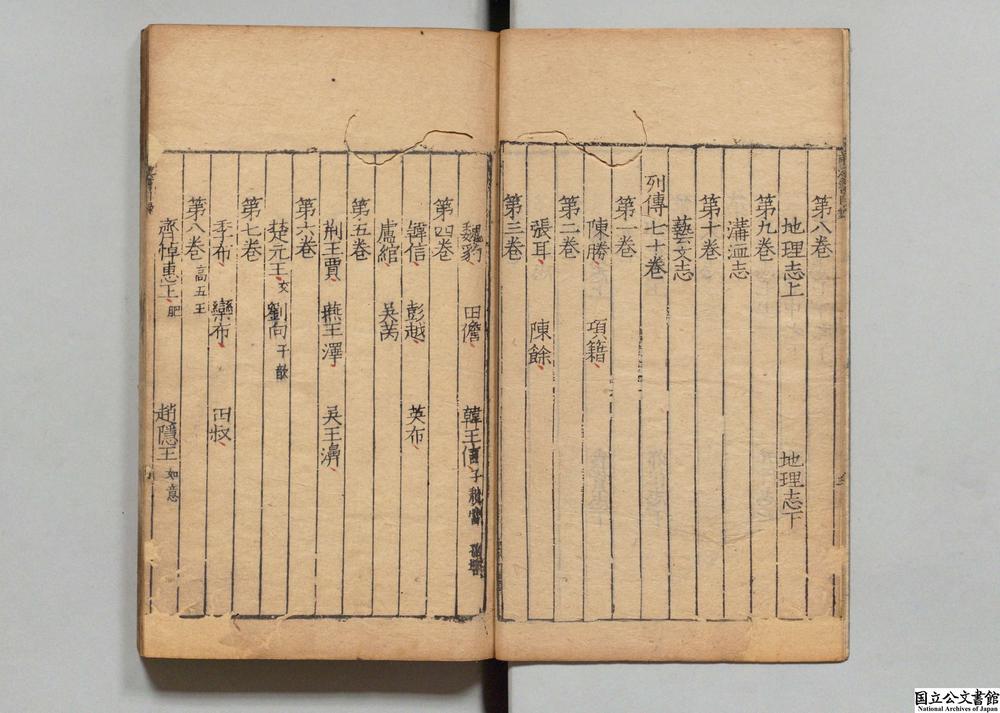 第八卷
地理志上 地理志下
第九卷
溝洫志
第十卷
藝文志
列傳七十卷
第一卷
陳勝 項籍
第二卷
張耳 陳餘
第三卷
魏豹 田儋 韓王信 子
第四卷
韓信 彭越 英布
盧綰 吳芮
第五卷
荆王賈 燕王澤 吳王濞
第六卷
楚元王 交 劉向 子歆
第七卷
季布 欒布 田叔
第八卷 高五王
齊悼惠王 肥 趙隱王 如意
国立公文書館
National Archives of Japan